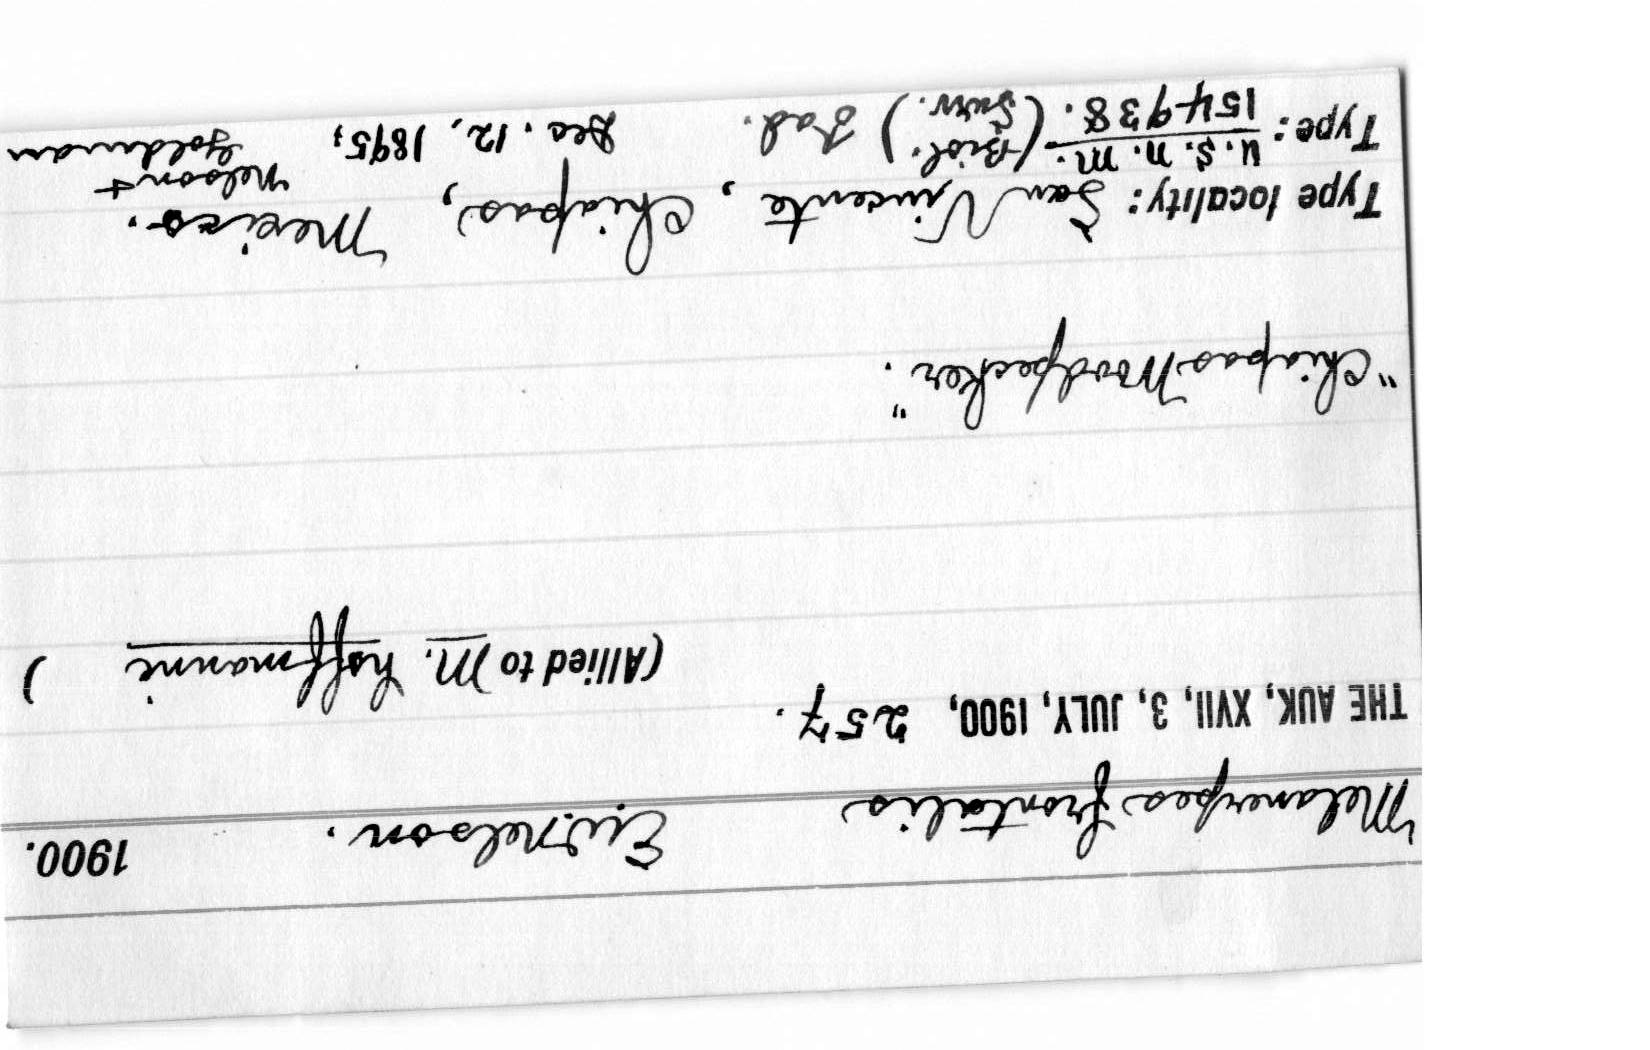 Melanerpes frontalis E.W. Nelson. 1900.
THE AUK, XVII, 3, JULY, 1900, 257.
(Allied to M. hoffmanni )
"Chiapas Woodpecker".
Type locality: San Vincente, Chiapas, Mexico.
Type: U.S.N.M. 154938. (Biol. Surv.) ad. Dec. 12, 1895; Nelson + Goldman